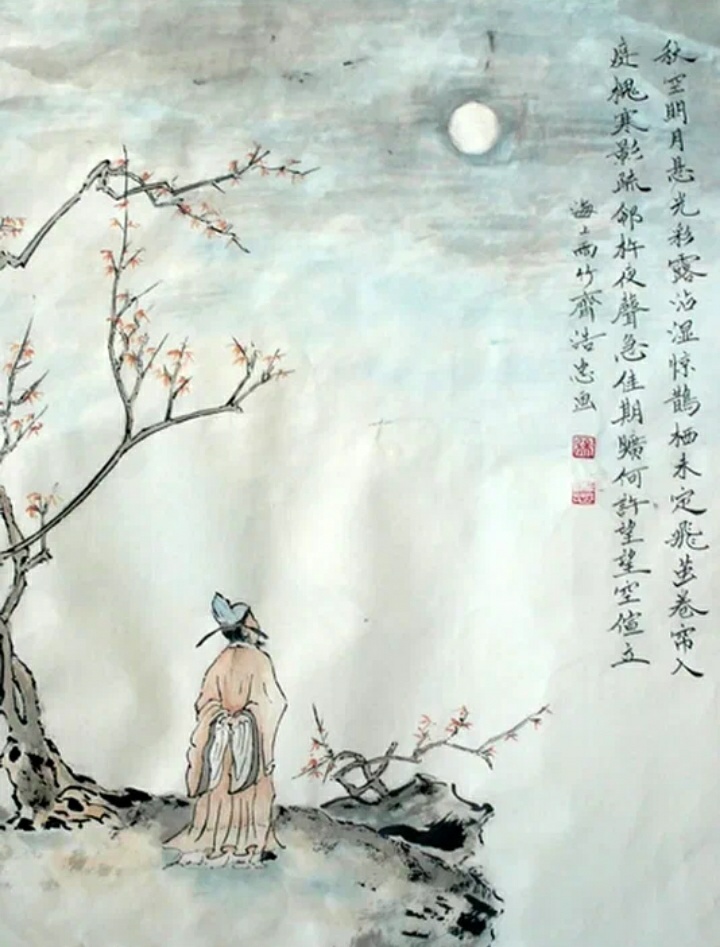 秋空明月悬光彩露沾湿惊鵲栖未定飛萤卷帘入
庭槐寒影疏邻杵夜聲急佳期曠何許望望空伫立
海上雨竹齋浩忠画